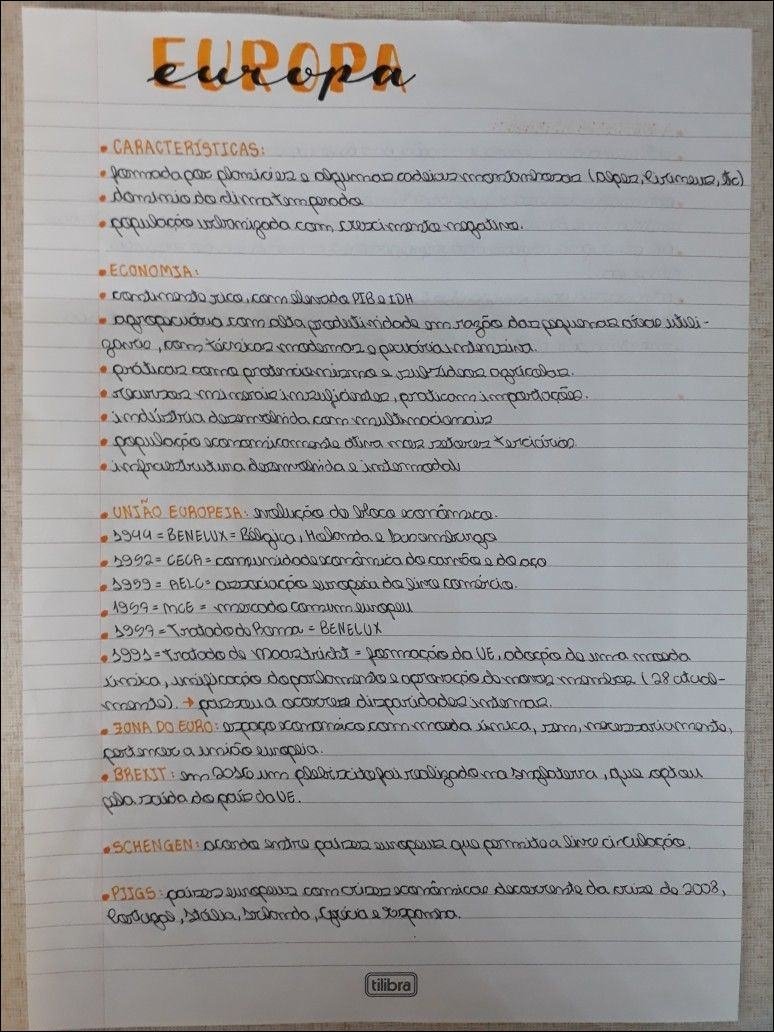 EUROPA
europa
• CARACTERÍSTICAS:
• formada por planícies e algumas cadeias montanhosas (Alpes, Pirineus, etc)
• domínio do clima temperado
• população urbanizada com crescimento negativo.
• ECONOMIA:
• continente rico, com elevado PIB e IDH
• agropecuária com alta produtividade em razão das pequenas áreas utili-
zarão, com técnicas modernas e pecuária intensiva.
• práticas como protecionismo e subsídios agrícolas.
• recursos minerais insuficientes, praticam importações.
• indústria desenvolvida com multinacionais
• população economicamente ativa nos setores terciários.
• infraestrutura desenvolvida e intermodal
• UNIÃO EUROPEIA: evolução do bloco econômico.
• 1944 = BENELUX = Bélgica, Holanda e Luxemburgo
• 1952 = CECA = comunidade econômica do carvão e do aço
• 1959 = AELC = associação europeia do livre comércio.
• 1957 = MCE = mercado comum europeu
• 1957 = Tratado de Roma = BENELUX
• 1991 = Tratado de Maastricht = formação da UE, adoção de uma moeda
única, unificação do parlamento e aprovação de novos membros (28 atual-
mente). → passou a ocorrer disparidades internas.
• ZONA DO EURO: espaço econômico com moeda única, sem, necessariamente,
pertencer a união europeia.
• BREXIT: em 2016 um plebiscito foi realizado na Inglaterra, que optou
pela saída do país da UE.
• SCHENGEN: acordo entre países europeus que permite a livre circulação.
• PIIGS: países europeus com crises econômicas decorrente da crise de 2008,
Portugal, Itália, Irlanda, Grécia e Espanha.
tilibra